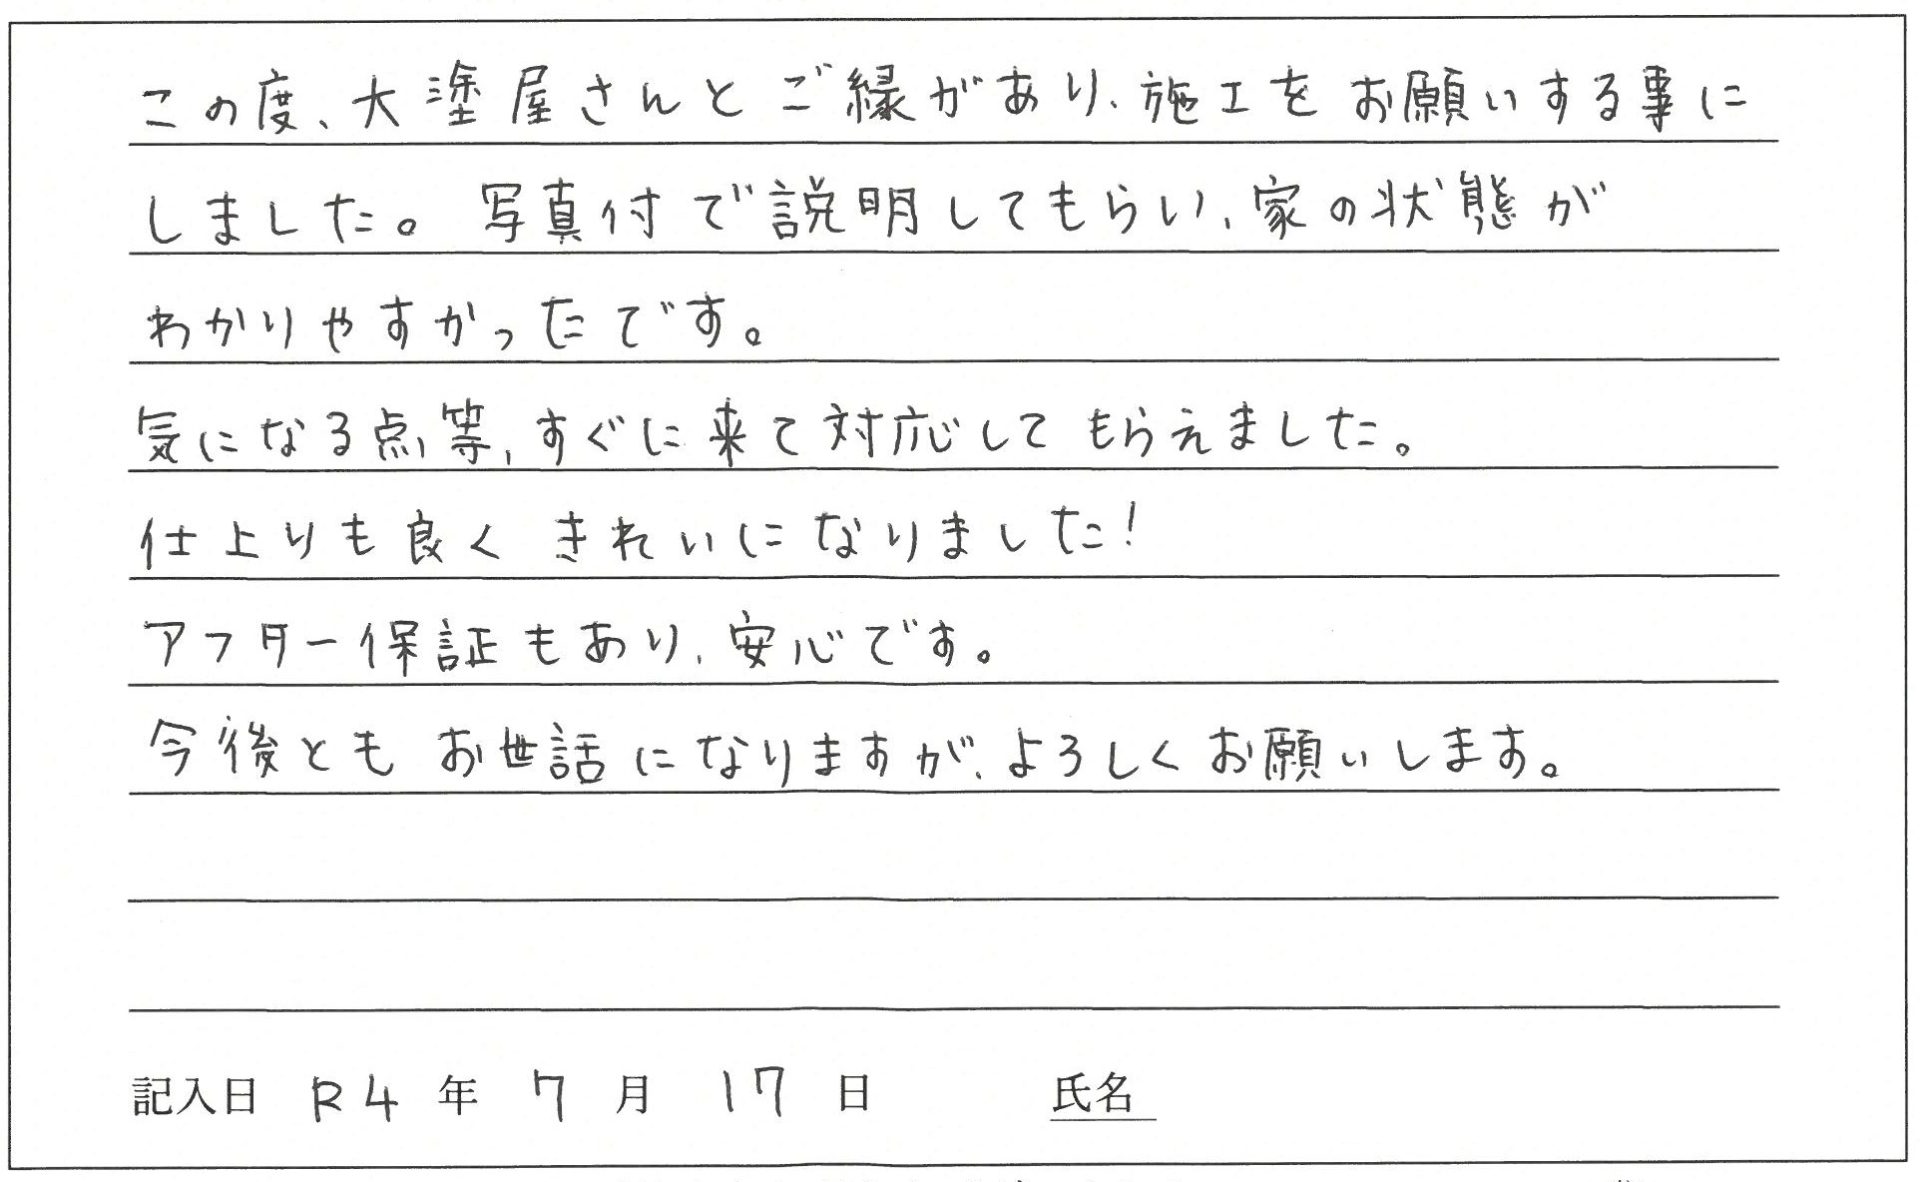 この度、大塗屋さんとご縁があり、施工をお願いする事に
しました。写真付で説明してもらい、家の状態が
わかりやすかったです。
気になる点等、すぐに来て対応してもらえました。
仕上りも良くきれいになりました!
アフター保証もあり、安心です。
今後ともお世話になりますが、よろしくお願いします。
記入日 R4 年 7 月 17 日 氏名